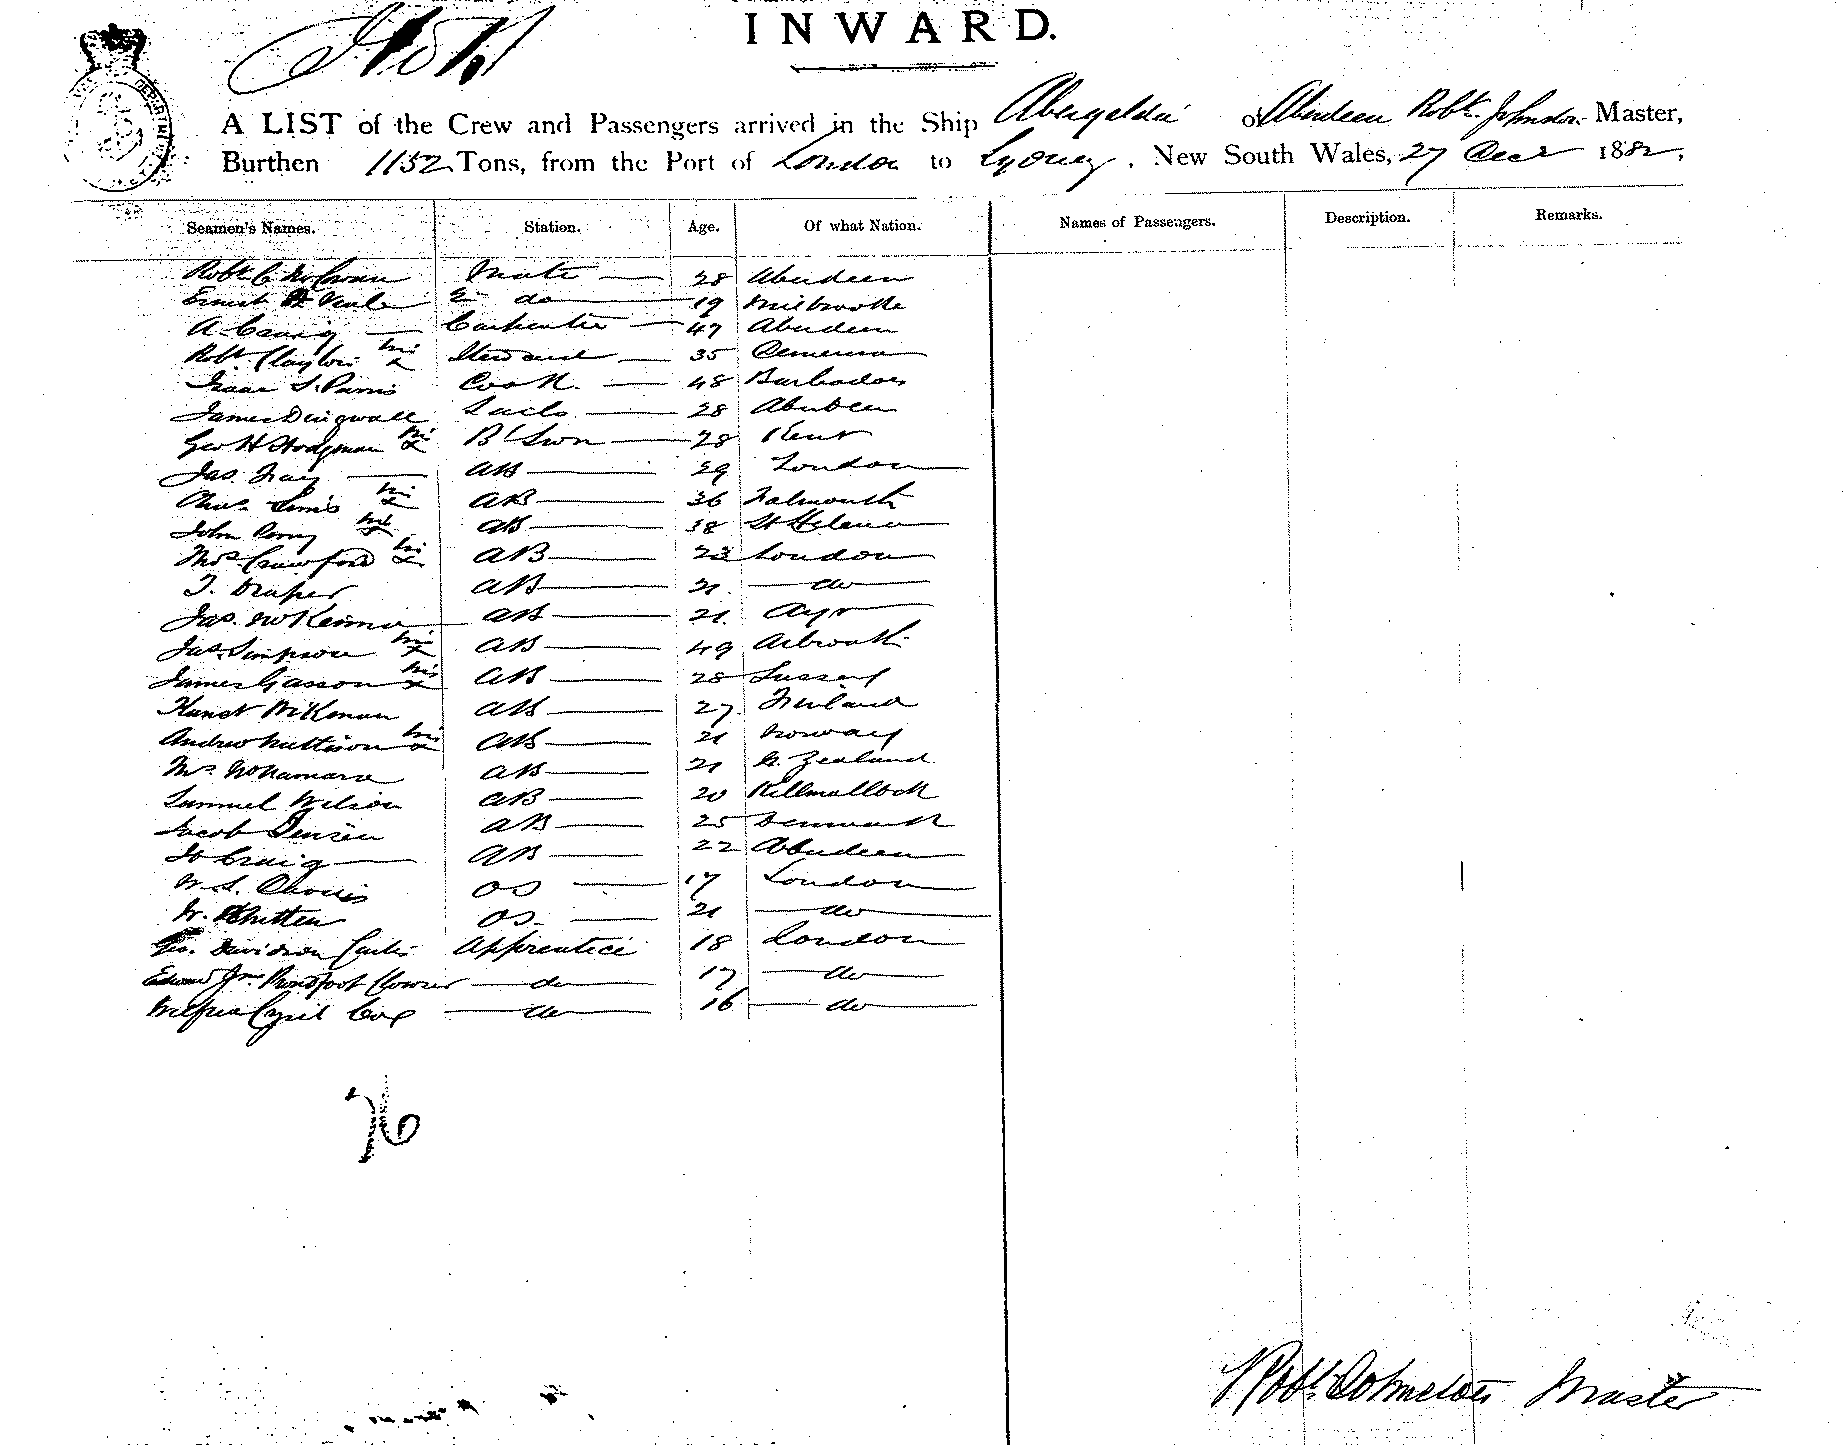 INWARD.
A LIST of the Crew and Passengers arrived in the Ship Abergeldie of Aberdeen Robt. Johnston Master,
Burthen 1152 Tons, from the Port of London to Sydney. New South Wales, 27 Decr 1882,
Seamen's Names. Station. Age. Of what Nation. Names of Passengers. Description. Remarks.
Robt C Mate 28 Aberdeen
Ernest 2 do 19 Millbrooke
A Craig Carpenter 47 Aberdeen
Robt. Clayton Steward 35 Demerara
Isaac S. Parris Cook 48 Barbadoes
James Dingwall Sails 28 Aberdeen
Geo H Hodgman B'Swn 28 Kent
Jas. Gray AB 29 London
Chas. Sims AB 36 Falmouth
John Perry AB 38 St Helena
Thos. Crawford AB 23 London
T. Draper AB 21 do
Jas. McKenna AB 21 Ayr
Jas. Simpson AB 49 Arbroath
James Gasson AB 28 Sussex
Wikman AB 27 Finland
Andrew Mattison AB 21 Norway
McNamara AB 21 N. Zealand
Samuel Wilson AB 20 Killmallock
Jacob Jensen AB 25 Denmark
Craig AB 22 Aberdeen
W. S. OS 17 London
Whitten OS 21 do
Geo. Davidson Apprentice 18 London
Edward Jno. Clowser do 17 do
Wilfred Cyril Cox do 16 do
26
Robt. Johnston Master